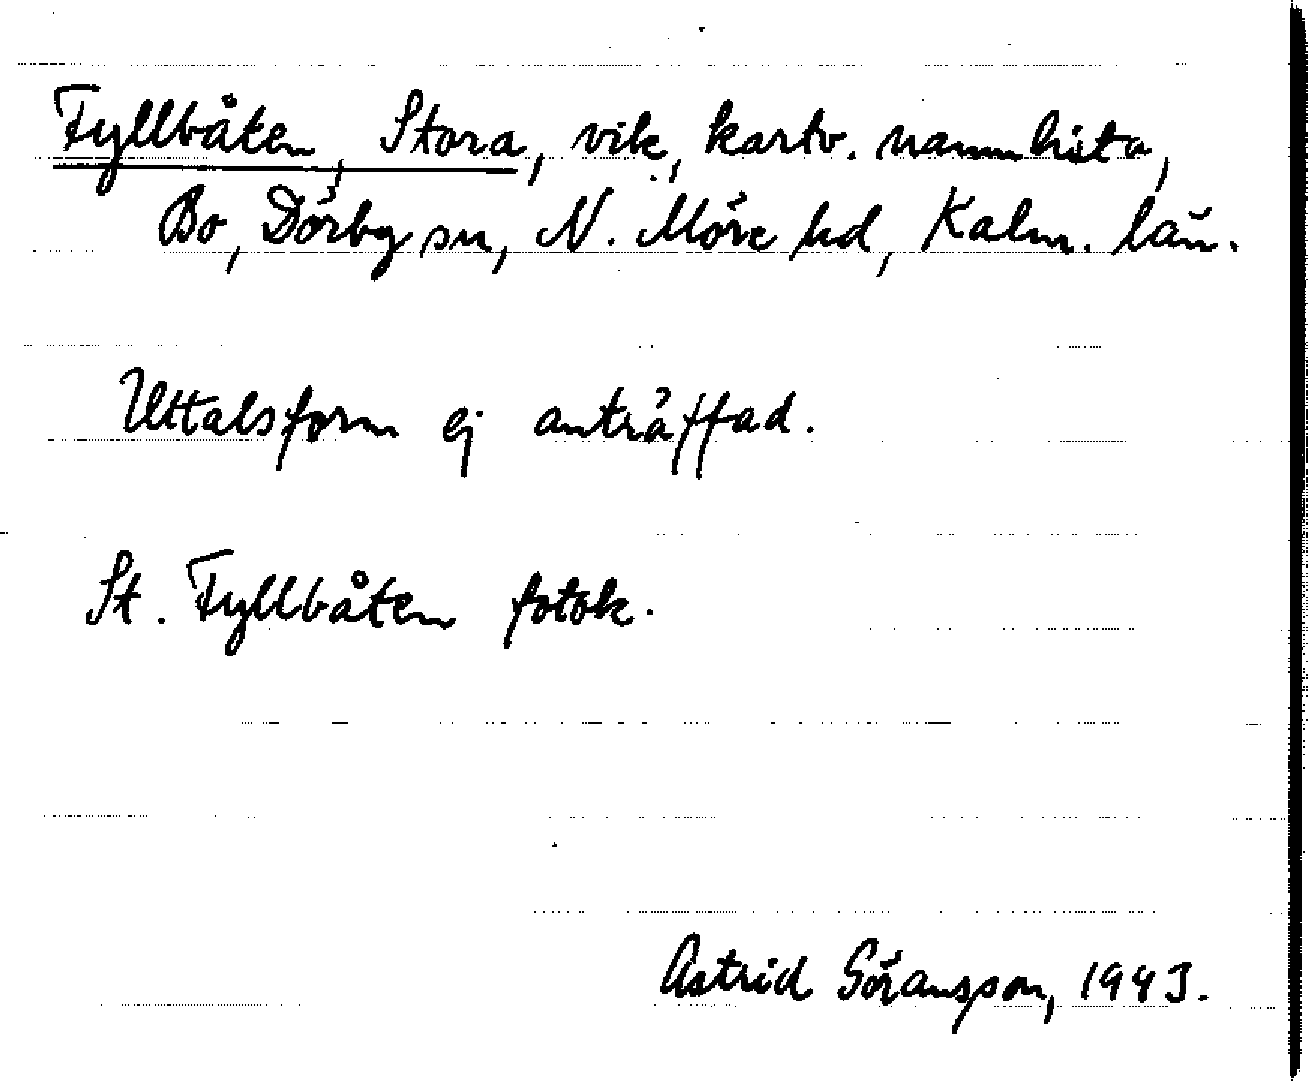 Fyllbåten, Stora, vik, kartv. namnlista,
Bo, Dörby sn, N. Möre hd, Kalm. län.
Uttalsform ej anträffad.
St. Fyllbåten fotok.
Astrid Göransson, 1943.